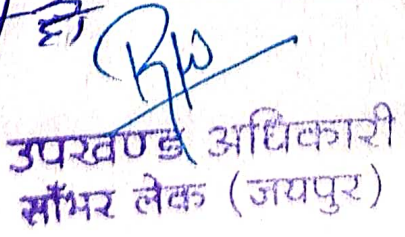 है
उपखण्ड अधिकारी
साँभर लेक (जयपुर)